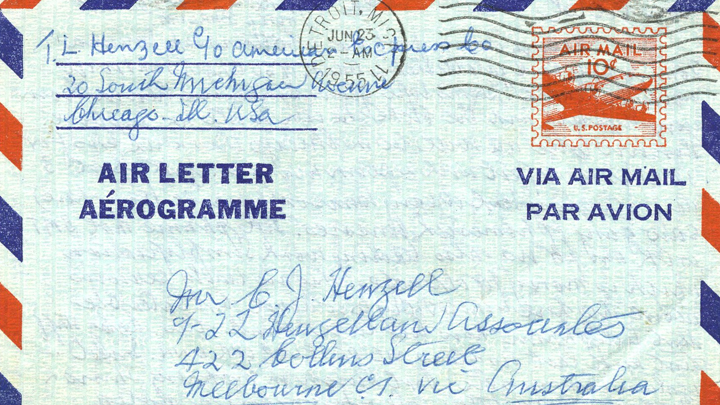 T. L Henzell c/o american Express Co
20 South Michigan Avenue
Chicago. Ill. USA
DETROIT, MICH
JUN 23
2 - AM
1955
AIR MAIL
10¢
U.S. POSTAGE
AIR LETTER
AÉROGRAMME
VIA AIR MAIL
PAR AVION
Mr C. J. Henzell
Associates
422 Collins Street
Melbourne C1. Vic Australia